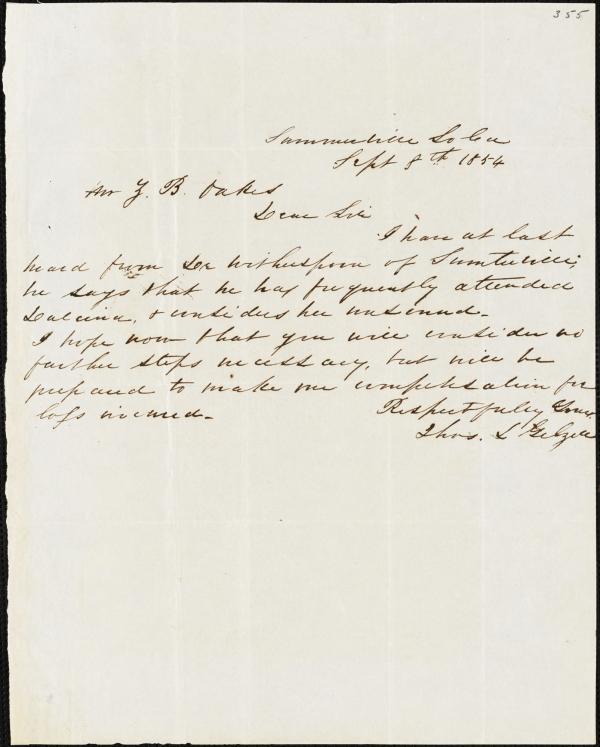 355
Summerville So Ca
Sept 8th 1854
Mr Z. B. Oakes
Dear Sir
I have at last
heard from Dr Witherspoon of Sumterville;
he says that he has frequently attended
& considers her unsound.
I hope now that you will consider no
further steps necessary, but will be
prepared to make me compensation for
loss incured.
Respectfully Yours
Thos. L Gelzer